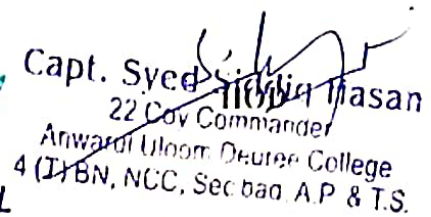 Capt. Syed Siddiq Hasan
22 Coy Commander
Anwarul Uloom Degree College
4 (T) BN, NCC, Sec'bad. A.P & T.S.